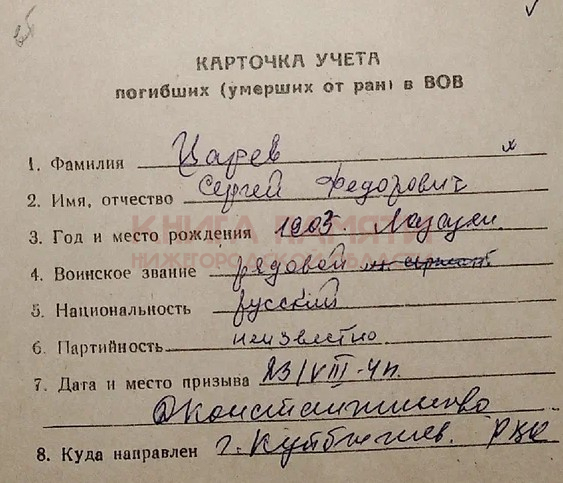 КАРТОЧКА УЧЕТА
погибших (умерших от ран) в ВОВ
1. Фамилия Царев
2. Имя, отчество Сергей Федорович
КНИГА ПАМЯТИ
3. Год и место рождения 1903
НИЖЕГОРОДСКОЙ ОБЛАСТИ
4. Воинское звание рядовой
5. Национальность русский
6. Партийность неизвестно
7. Дата и место призыва 23/VIII-41г.
Константиново
8. Куда направлен г. Куйбышев.